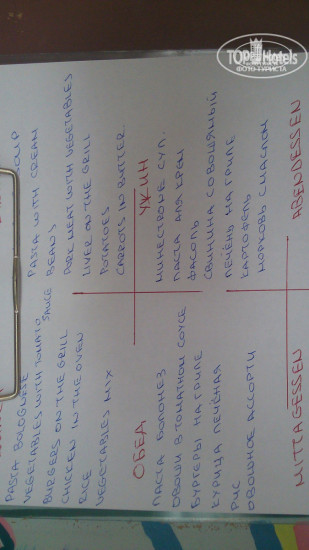 PASTA BOLOGNESE
VEGETABLES WITH TOMATO
SAUCE
BURGERS ON THE GRILL
CHICKEN IN THE OVEN
RICE
VEGETABLES MIX
SOUP
PASTA WITH CREAM
BEANS
PORK MEAT WITH VEGETABLES
LIVER ON THE GRILL
POTATOES
CARROTS IN BUTTER
ОБЕД
ПАСТА БОЛОНЕЗ
ОВОЩИ В ТОМАТНОМ СОУСЕ
БУРГЕРЫ НА ГРИЛЕ
КУРИЦА ПЕЧЁНАЯ
РИС
ОВОЩНОЕ АССОРТИ
УЖИН
МИНЕСТРОНЕ СУП.
ПАСТА ДЛЯ КРЕМ
ФАСОЛЬ
СВИНИНА С ОВОЩЯМЫЙ
ПЕЧЕНЬ НА ГРИЛЕ
КАРТОФЕЛЬ
МОРКОВЬ С МАСЛОМ
MITTAGESSEN
ABENDESSEN
TOP Hotels
ФОТО ТУРИСТА